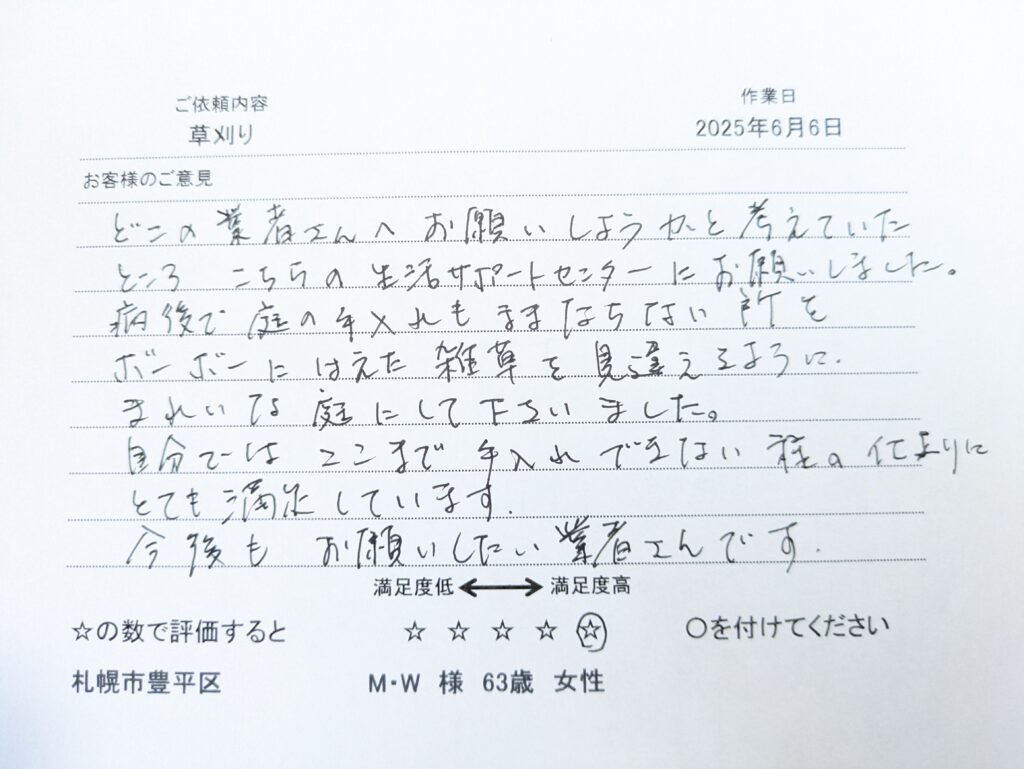 ご依頼内容
作業日
草刈り
2025年6月6日
お客様のご意見
どこの業者さんへ お願いしようかと考えていた
ところ こちらの生活サポートセンターにお願いしました。
病後で庭の手入れもままならない所を
ボーボーにはえた雑草を見違えるように
きれいな庭にして下さいました。
自分ではここまで手入れできない程の仕上りに
とても満足しています.
今後も お願いしたい業者さんです.
満足度低 ⟷ 満足度高
☆の数で評価すると ☆ ☆ ☆ ☆ ☆ 〇を付けてください
札幌市豊平区 M・W 様 63歳 女性